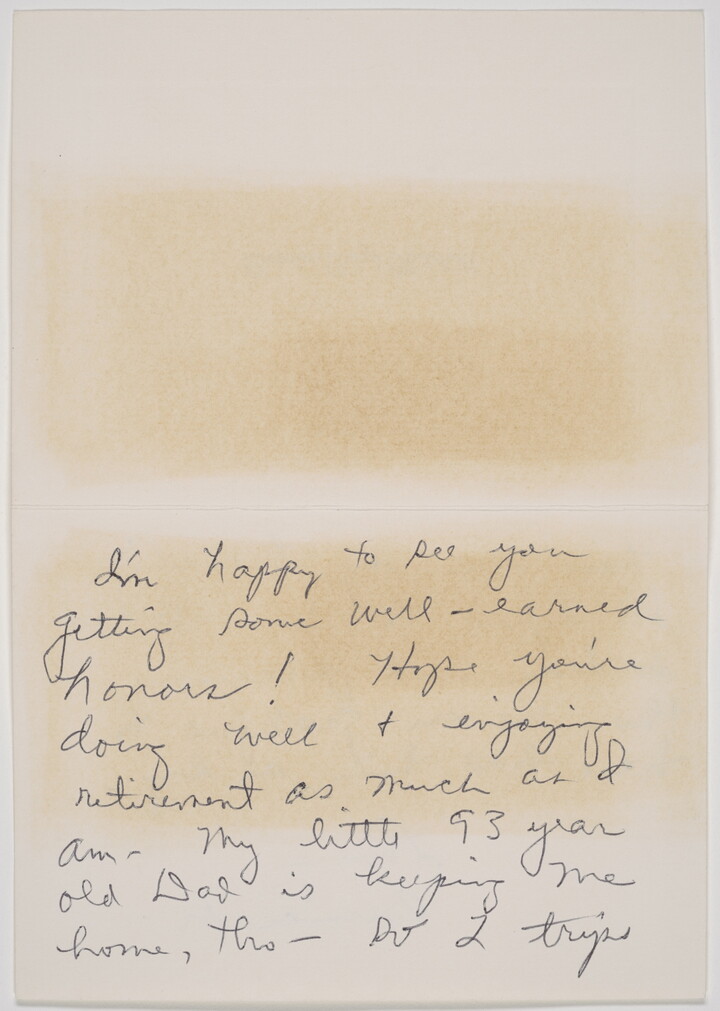 I'm happy to see you
getting some well-earned
honors! Hope you're
doing well & enjoying
retirement as much as I
am- My little 93 year
old Dad is keeping me
home, tho- trips